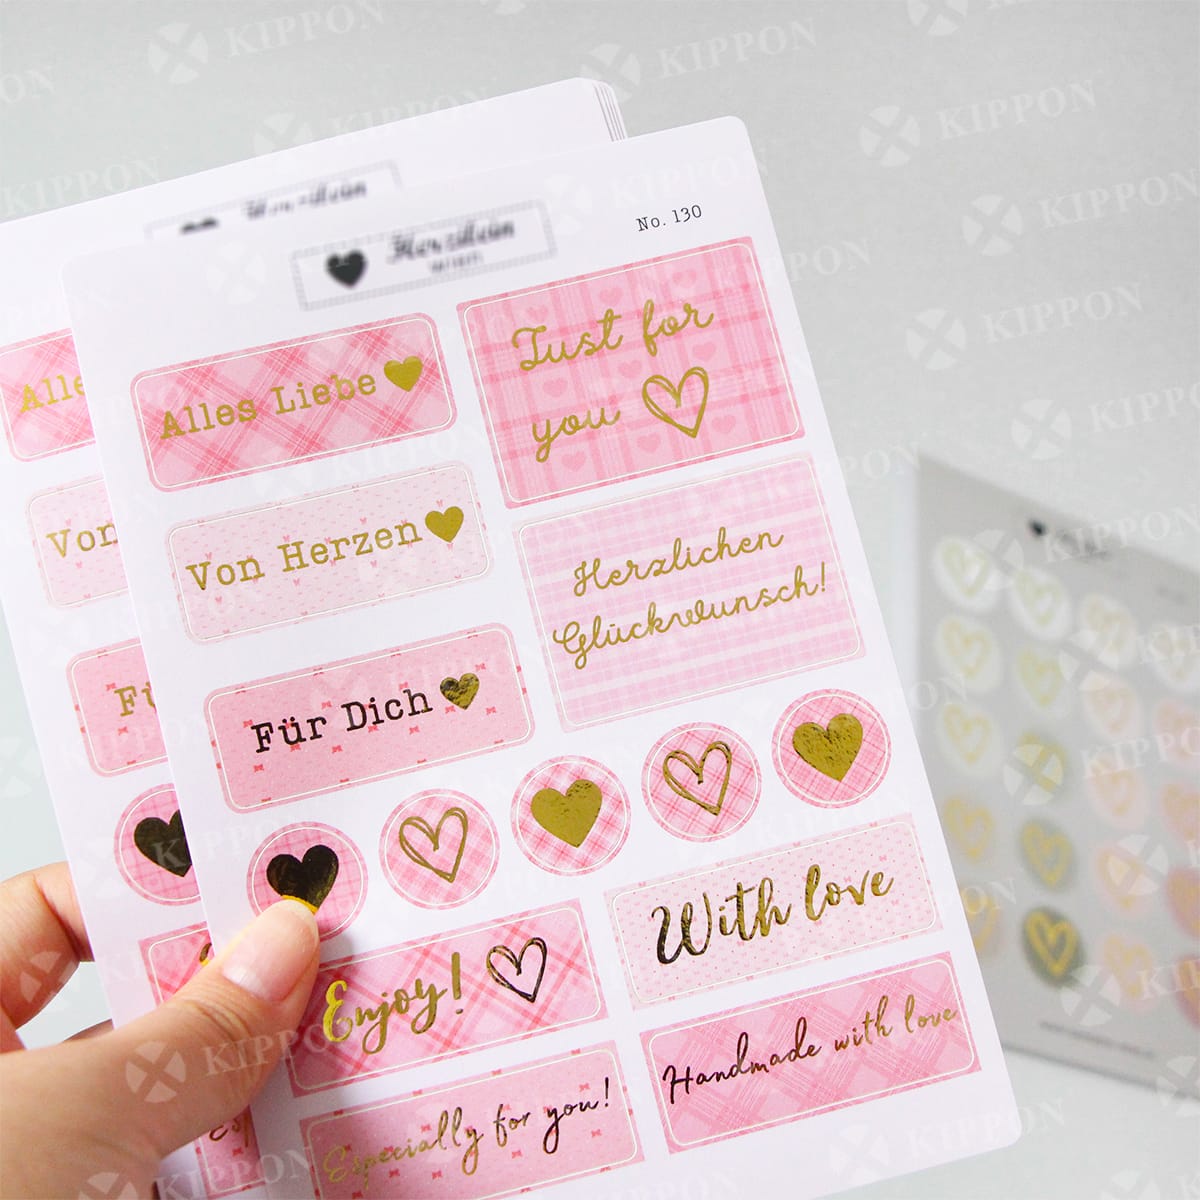 No. 130
Alles Liebe
Just for
you
Von Herzen
Herzlichen
Glückwunsch!
Für Dich
With love
Enjoy!
Handmade with love
Especially for you!
Alle
Von
Fü
Esp
KIPPON